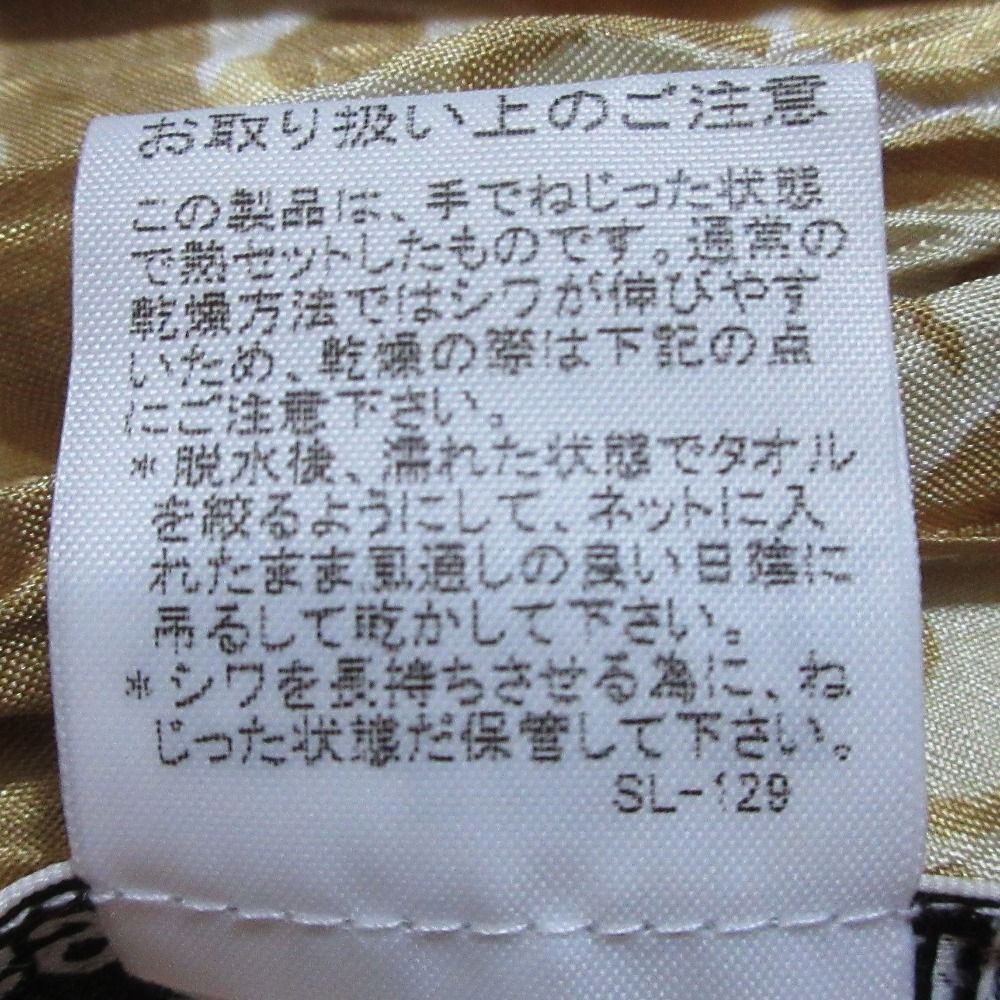 お取り扱い上のご注意
この製品は、手でねじった状態
で熱セットしたものです。通常の
乾燥方法ではシワが伸びやす
いため、乾燥の際は下記の点
にご注意下さい。
* 脱水後、濡れた状態でタオル
を絞るようにして、ネットに入
れたまま風通しの良い日陰に
吊るして乾かして下さい。
* シワを長持ちさせる為に、ね
じった状態だ保管して下さい。
SL-129